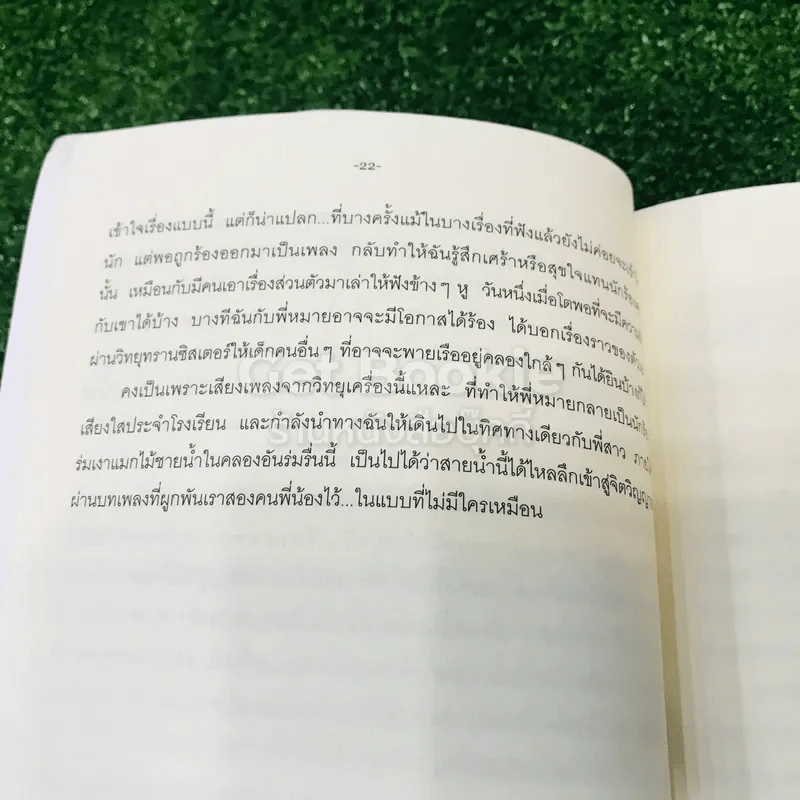 -22-
เข้าใจเรื่องแบบนี้ แต่ก็น่าแปลก...ที่บางครั้งแม้ในบางเรื่องที่ฟังแล้วยังไม่ค่อยจะเข้าใจ
นัก แต่พอถูกร้องออกมาเป็นเพลง กลับทำให้ฉันรู้สึกเศร้าหรือสุขใจแทนนักร้อง
นั้น เหมือนกับมีคนเอาเรื่องส่วนตัวมาเล่าให้ฟังข้างๆ หู วันหนึ่งเมื่อโตพอที่จะมี
กับเขาได้บ้าง บางทีฉันกับพี่หมายอาจจะมีโอกาสได้ร้อง ได้บอกเรื่องราวของ
ผ่านวิทยุทรานซิสเตอร์ให้เด็กคนอื่นๆ ที่อาจจะพายเรืออยู่คลองใกล้ๆ กันได้ยินบ้าง
คงเป็นเพราะเสียงเพลงจากวิทยุเครื่องนี้แหละ ที่ทำให้พี่หมายกลายเป็น
เสียงใสประจำโรงเรียน และกำลังนำทางฉันให้เดินไปในทิศทางเดียวกับพี่สาว
ร่มเงาแมกไม้ชายน้ำในคลองอันร่มรื่นนี้ เป็นไปได้ว่าสายน้ำนี้ได้ไหลลึกเข้าสู่จิตวิญญาณ
ผ่านบทเพลงที่ผูกพันเราสองคนพี่น้องไว้...ในแบบที่ไม่มีใครเหมือน
Get Bookie
ร้านหนังสือบุ๊กกี้